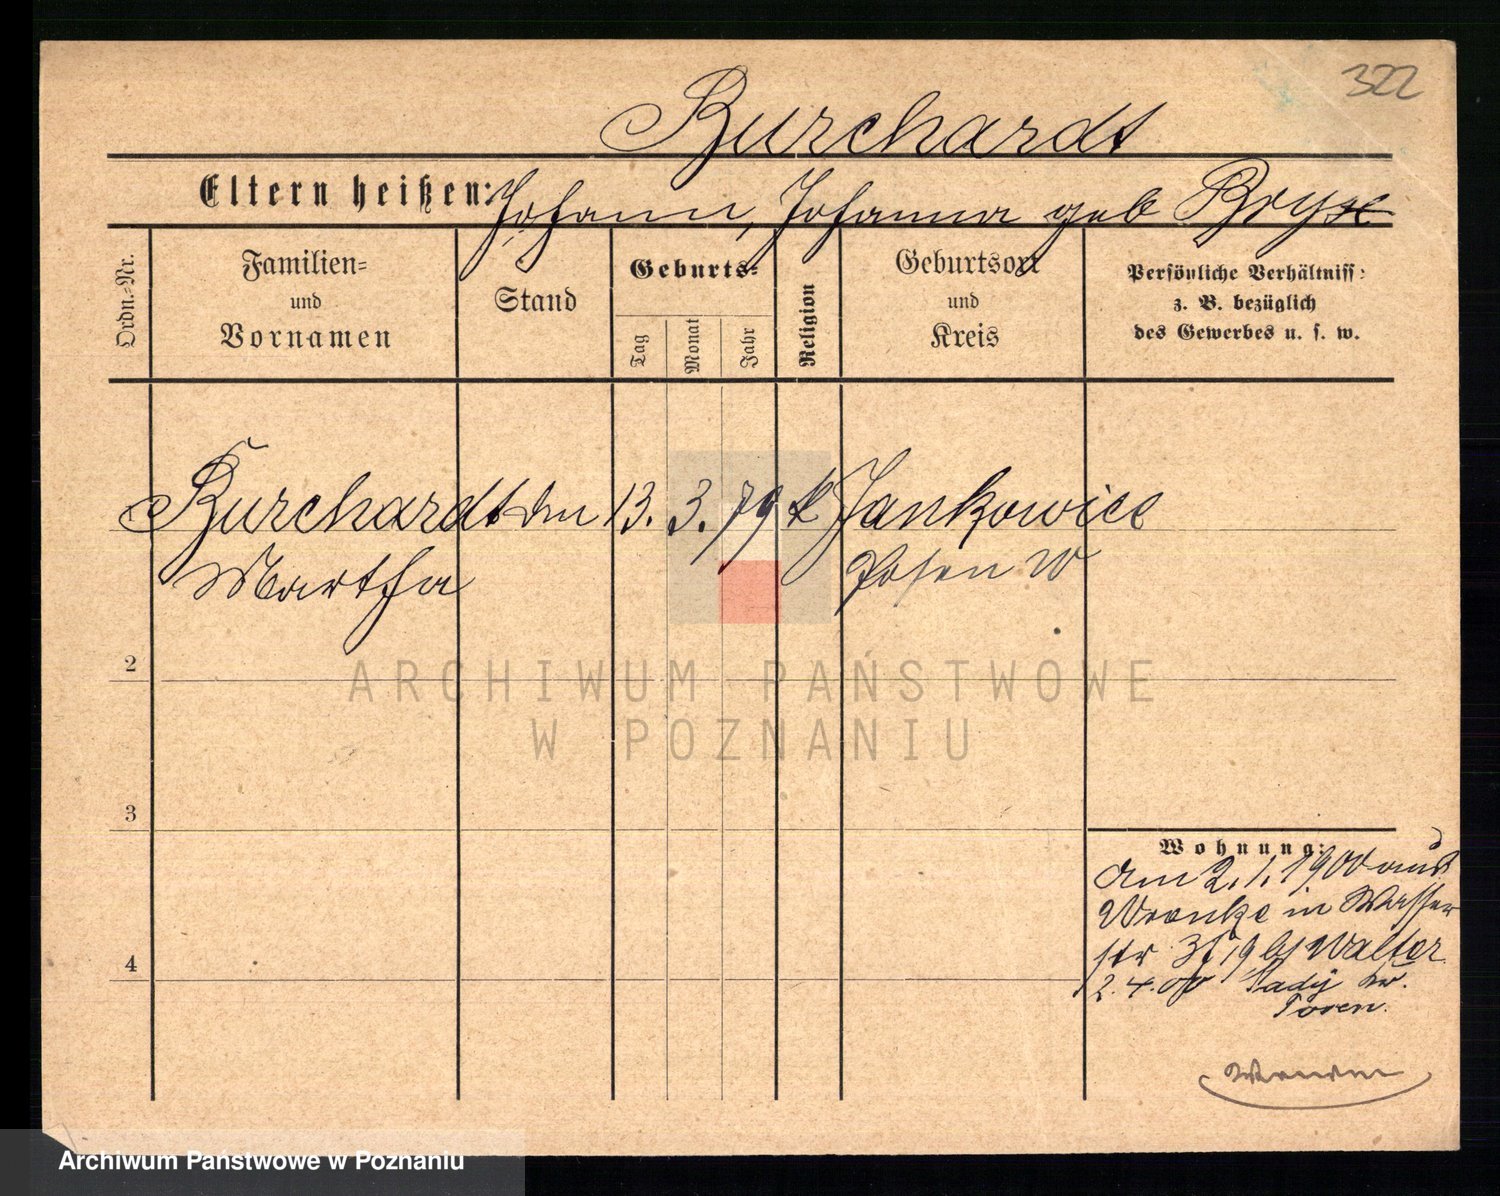 322
Burchardt
Eltern heißen: Johann, Johanna geb
Ordn.=Nr.
Familien=
und
Vornamen
Stand
Geburts=
Tag
Monat
Jahr
Religion
Geburtsort
und
Kreis
Persönliche Verhältniss:
z. B. bezüglich
des Gewerbes u. s. w.
Burchardt 13. 3. 79 k Jankowice
Martha Posen W
2
3
4
Wohnung:
am 2.1.1900 aus
Wronke in Wasser
str bei Walter
2.4.00 Sady Kr.
Posen.
ARCHIWUM PAŃSTWOWE
W POZNANIU
Archiwum Państwowe w Poznaniu